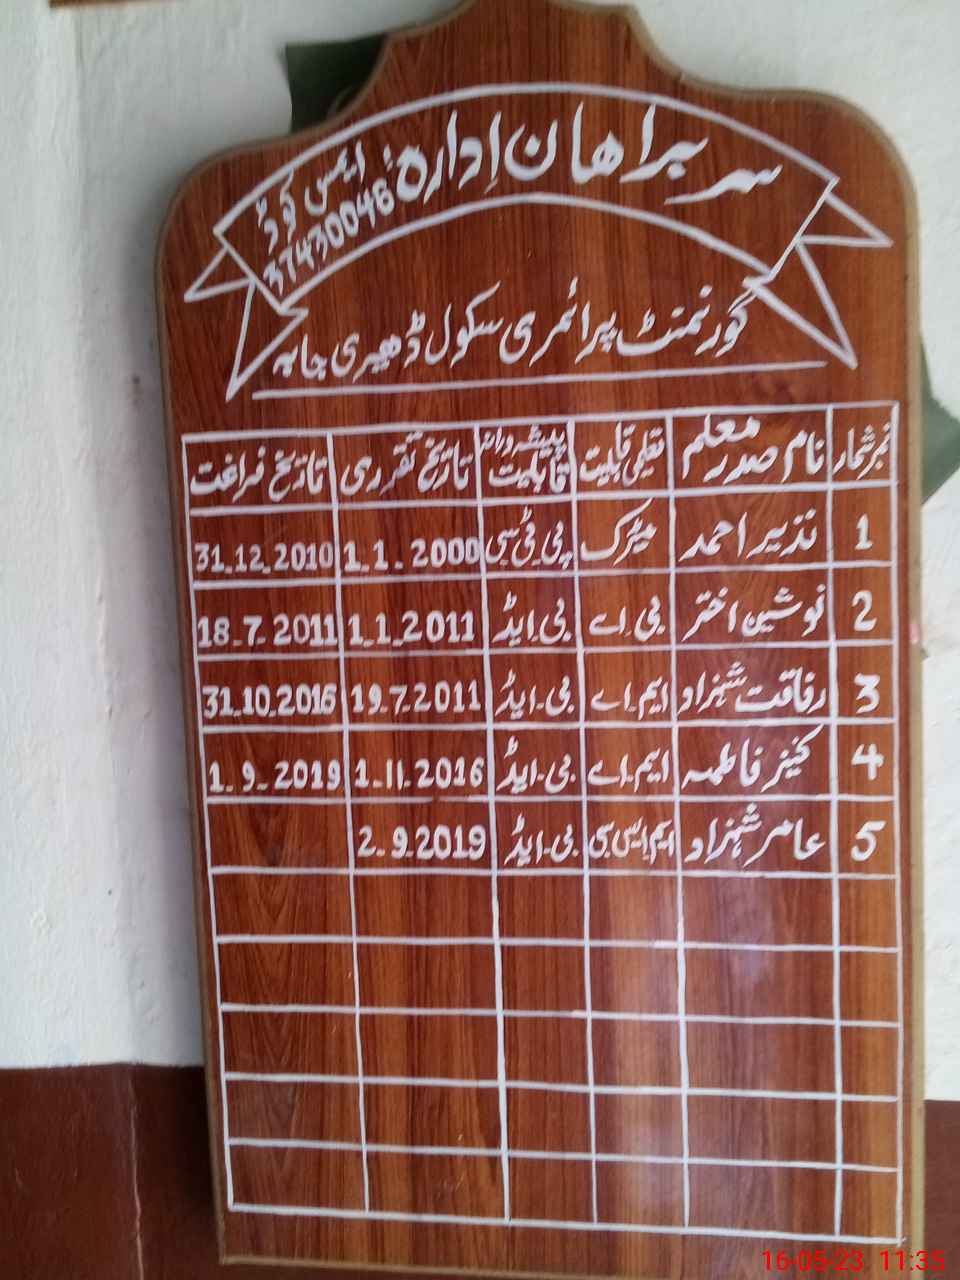 سربراهان اداره
ایمس کوڈ
37430046
گورنمنٹ پرائمری سکول ڈھیری جابہ
نمبر شمار نام صدر معلم تعلیمی قابلیت پیشہ ورانہ قابلیت تاریخ تقرری تاریخ فراغت
1 نذیر احمد میٹرک پی ٹی سی 1.1.2000 31.12.2010
2 نوشین اختر بی اے بی ایڈ 1.1.2011 18.7.2011
3 رفاقت شہزاد ایم اے بی ایڈ 19.7.2011 31.10.2016
4 کنیز فاطمہ ایم اے بی ایڈ 1.11.2016 1.9.2019
5 عامر شہزاد ایم ایس سی بی ایڈ 2.9.2019
16-05-23 11:35